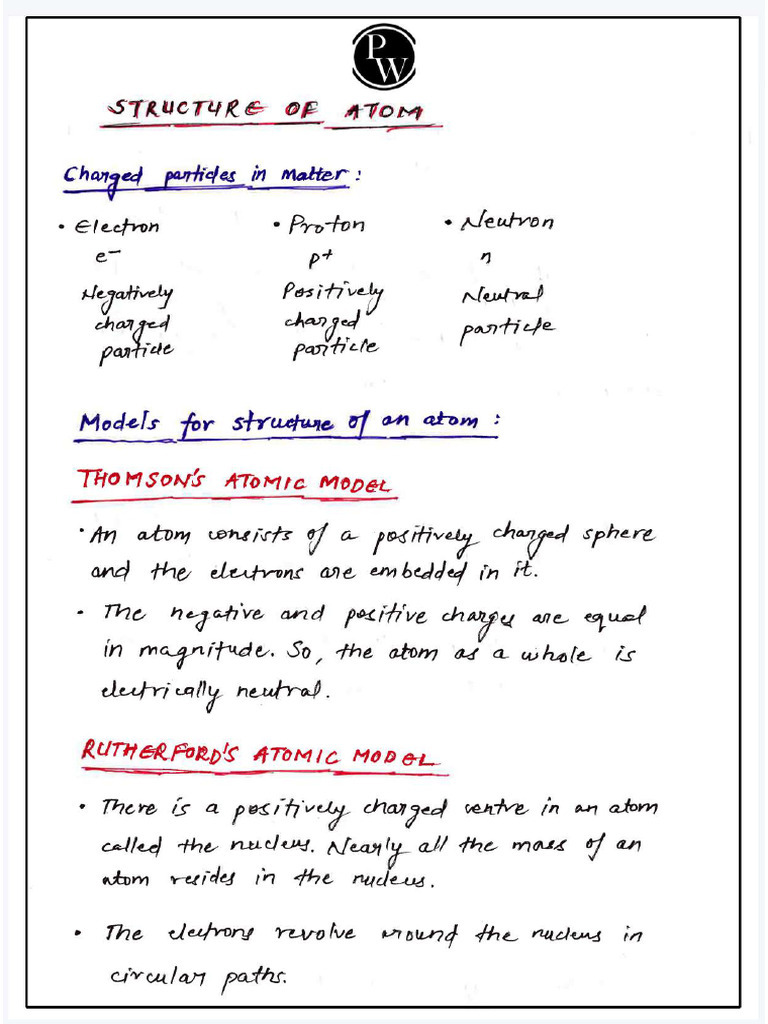 PW
STRUCTURE OF ATOM
Charged particles in matter :
• Electron • Proton • Neutron
e⁻ p⁺ n
Negatively Positively Neutral
charged charged particle
particle particle
Models for structure of an atom :
THOMSON'S ATOMIC MODEL
• An atom consists of a positively charged sphere
and the electrons are embedded in it.
• The negative and positive charges are equal
in magnitude. So, the atom as a whole is
electrically neutral.
RUTHERFORD'S ATOMIC MODEL
• There is a positively charged centre in an atom
called the nucleus. Nearly all the mass of an
atom resides in the nucleus.
• The electrons revolve around the nucleus in
circular paths.